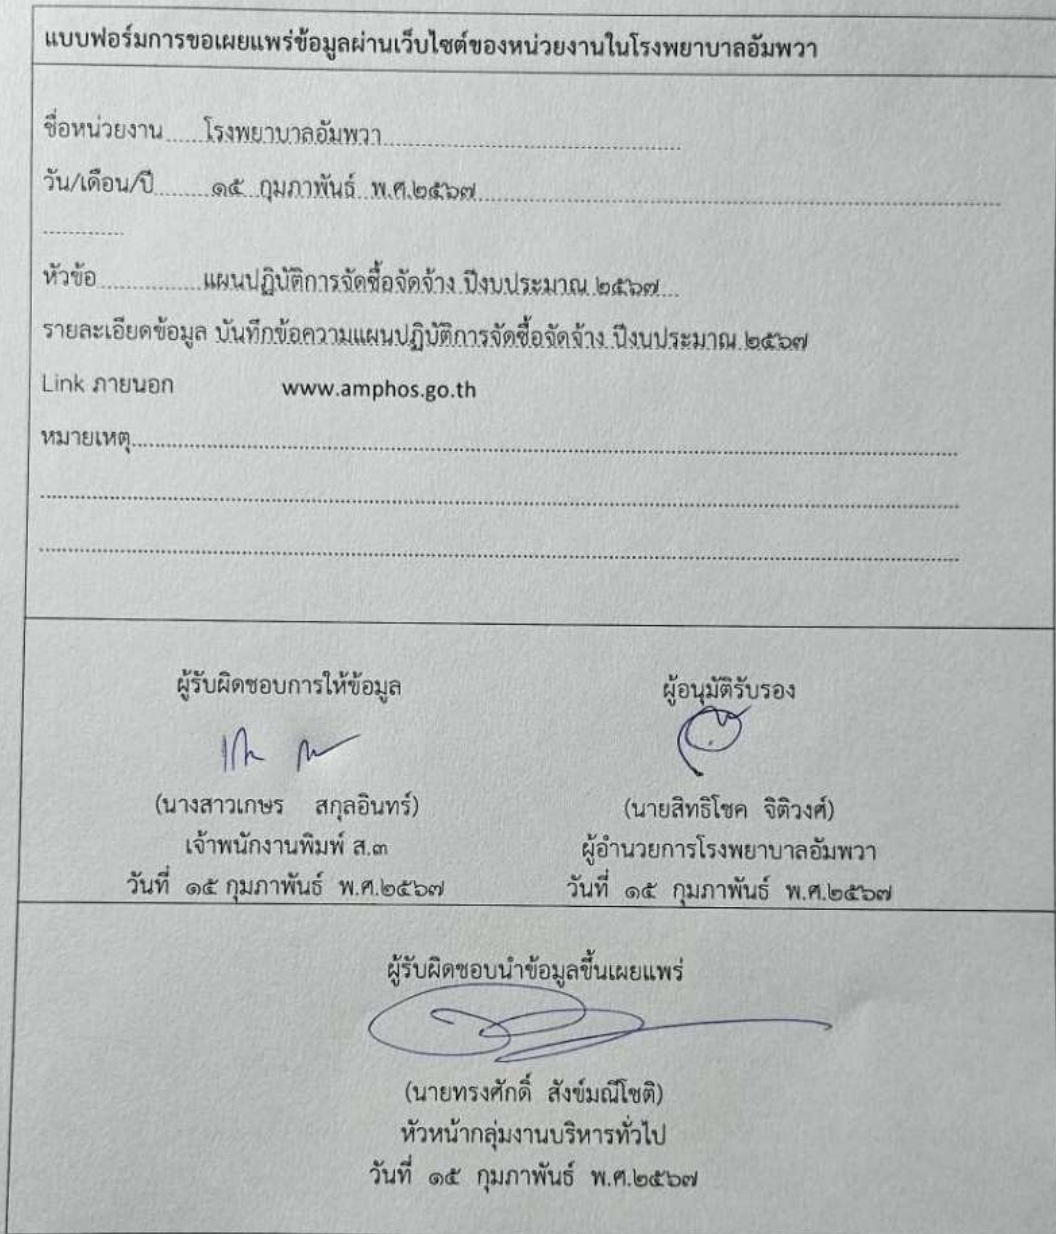 แบบฟอร์มการขอเผยแพร่ข้อมูลผ่านเว็บไซต์ของหน่วยงานในโรงพยาบาลอัมพวา
ชื่อหน่วยงาน.....โรงพยาบาลอัมพวา
วัน/เดือน/ปี ๑๕ กุมภาพันธ์ พ.ศ.๒๕๖๗
หัวข้อ แผนปฏิบัติการจัดซื้อจัดจ้าง ปีงบประมาณ ๒๕๖๗
รายละเอียดข้อมูล บันทึกข้อความแผนปฏิบัติการจัดซื้อจัดจ้าง ปีงบประมาณ ๒๕๖๗
Link ภายนอก www.amphos.go.th
หมายเหตุ
ผู้รับผิดชอบการให้ข้อมูล ผู้อนุมัติรับรอง
(นางสาวเกษร สกุลอินทร์) (นายสิทธิโชค จิติวงศ์)
เจ้าพนักงานพิมพ์ ส.๓ ผู้อำนวยการโรงพยาบาลอัมพวา
วันที่ ๑๕ กุมภาพันธ์ พ.ศ.๒๕๖๗ วันที่ ๑๕ กุมภาพันธ์ พ.ศ.๒๕๖๗
ผู้รับผิดชอบนำข้อมูลขึ้นเผยแพร่
(นายทรงศักดิ์ สังข์มณีโชติ)
หัวหน้ากลุ่มงานบริหารทั่วไป
วันที่ ๑๕ กุมภาพันธ์ พ.ศ.๒๕๖๗